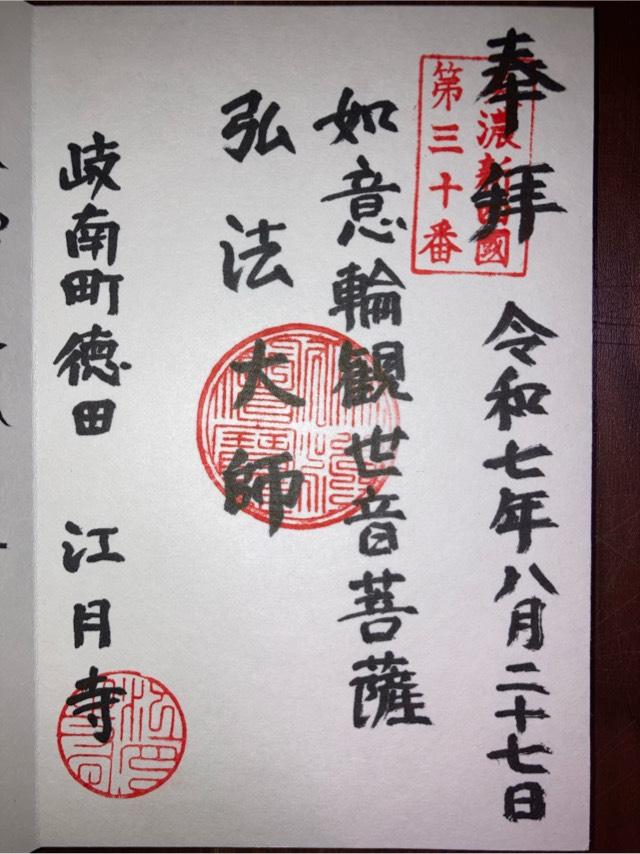 奉拝
濃新四國
第三十番
令和七年八月二十七日
如意輪観世音菩薩
弘法大師
岐南町徳田 江月寺